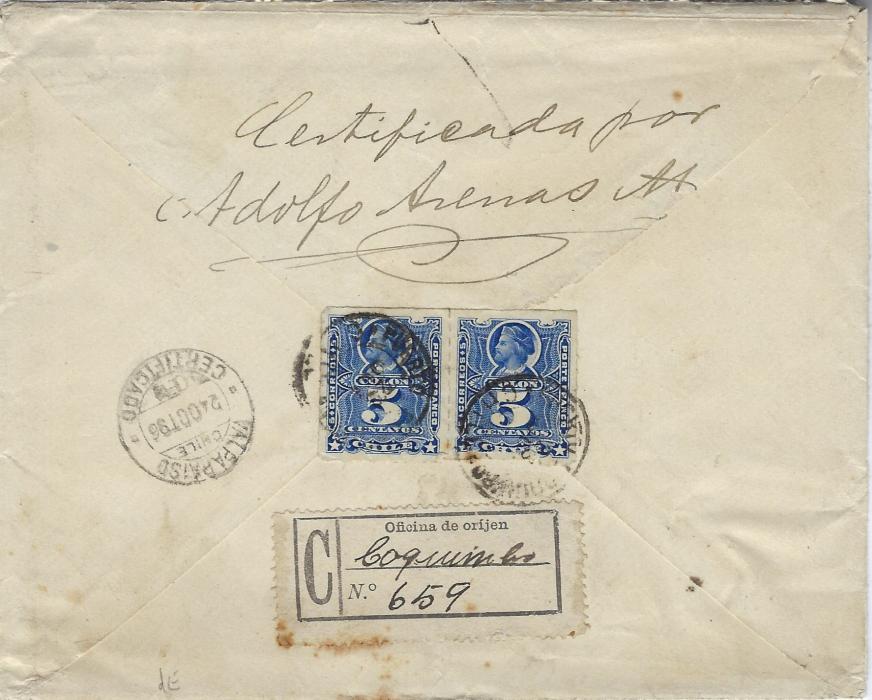 Certificada por
Adolfo Arenas M
5 CORREOS 5
PORTE FRANCO
COLON
5
CENTAVOS
CHILE
5 CORREOS 5
PORTE FRANCO
COLON
5
CENTAVOS
CHILE
CERTIFICADO
24 OCT 96
CHILE
VALPARAISO
C
Oficina de oríjen
Coquimbo
N.º 659
dE